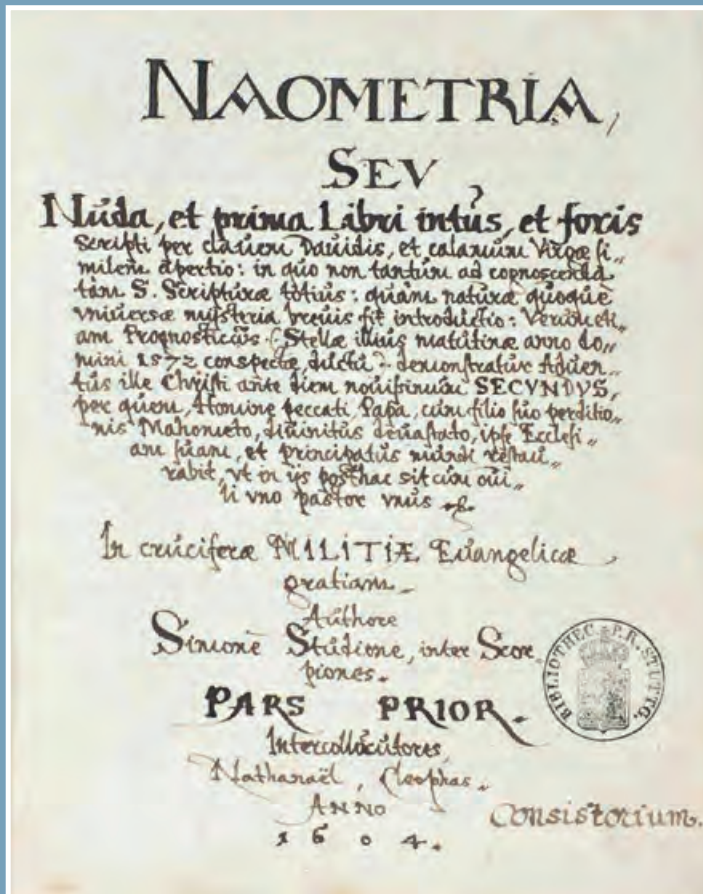 NAOMETRIA,
SEV
Nuda, et prima Libri intus, et foris
scripti per clavem Davidis, et calamum Virgæ si„
milem apertio: in quo non tantum ad cognoscenda
tam S. Scripturæ totius: quam naturæ quoque
vniversæ mysteria brevis fit introductio: Verum eti„
am Prognosticus (Stellæ illius matutinæ anno do„
mini 1572 conspectæ, ductu) demonstratur Adven„
tus ille Christi ante diem novissimum SECVNDVS,
per quem, Homine peccati Papa, cum filio suo perditio„
nis Mahometo, divinitus devastato, ipse Ecclesi„
am suam, et principatus mundi restau„
rabit, vt in ijs posthac sit cum oui„
li vno pastor vnus
In cruciferæ MILITIÆ Euangelicæ
gratiam.
Authore
Simone Studione, inter Scor„
piones.
PARS PRIOR.
Intercollocutores
Nathanaël, Cleophas„
ANNO
1604.
Consistorium.
BIBLIOTHEC. P. R. STUTTG.